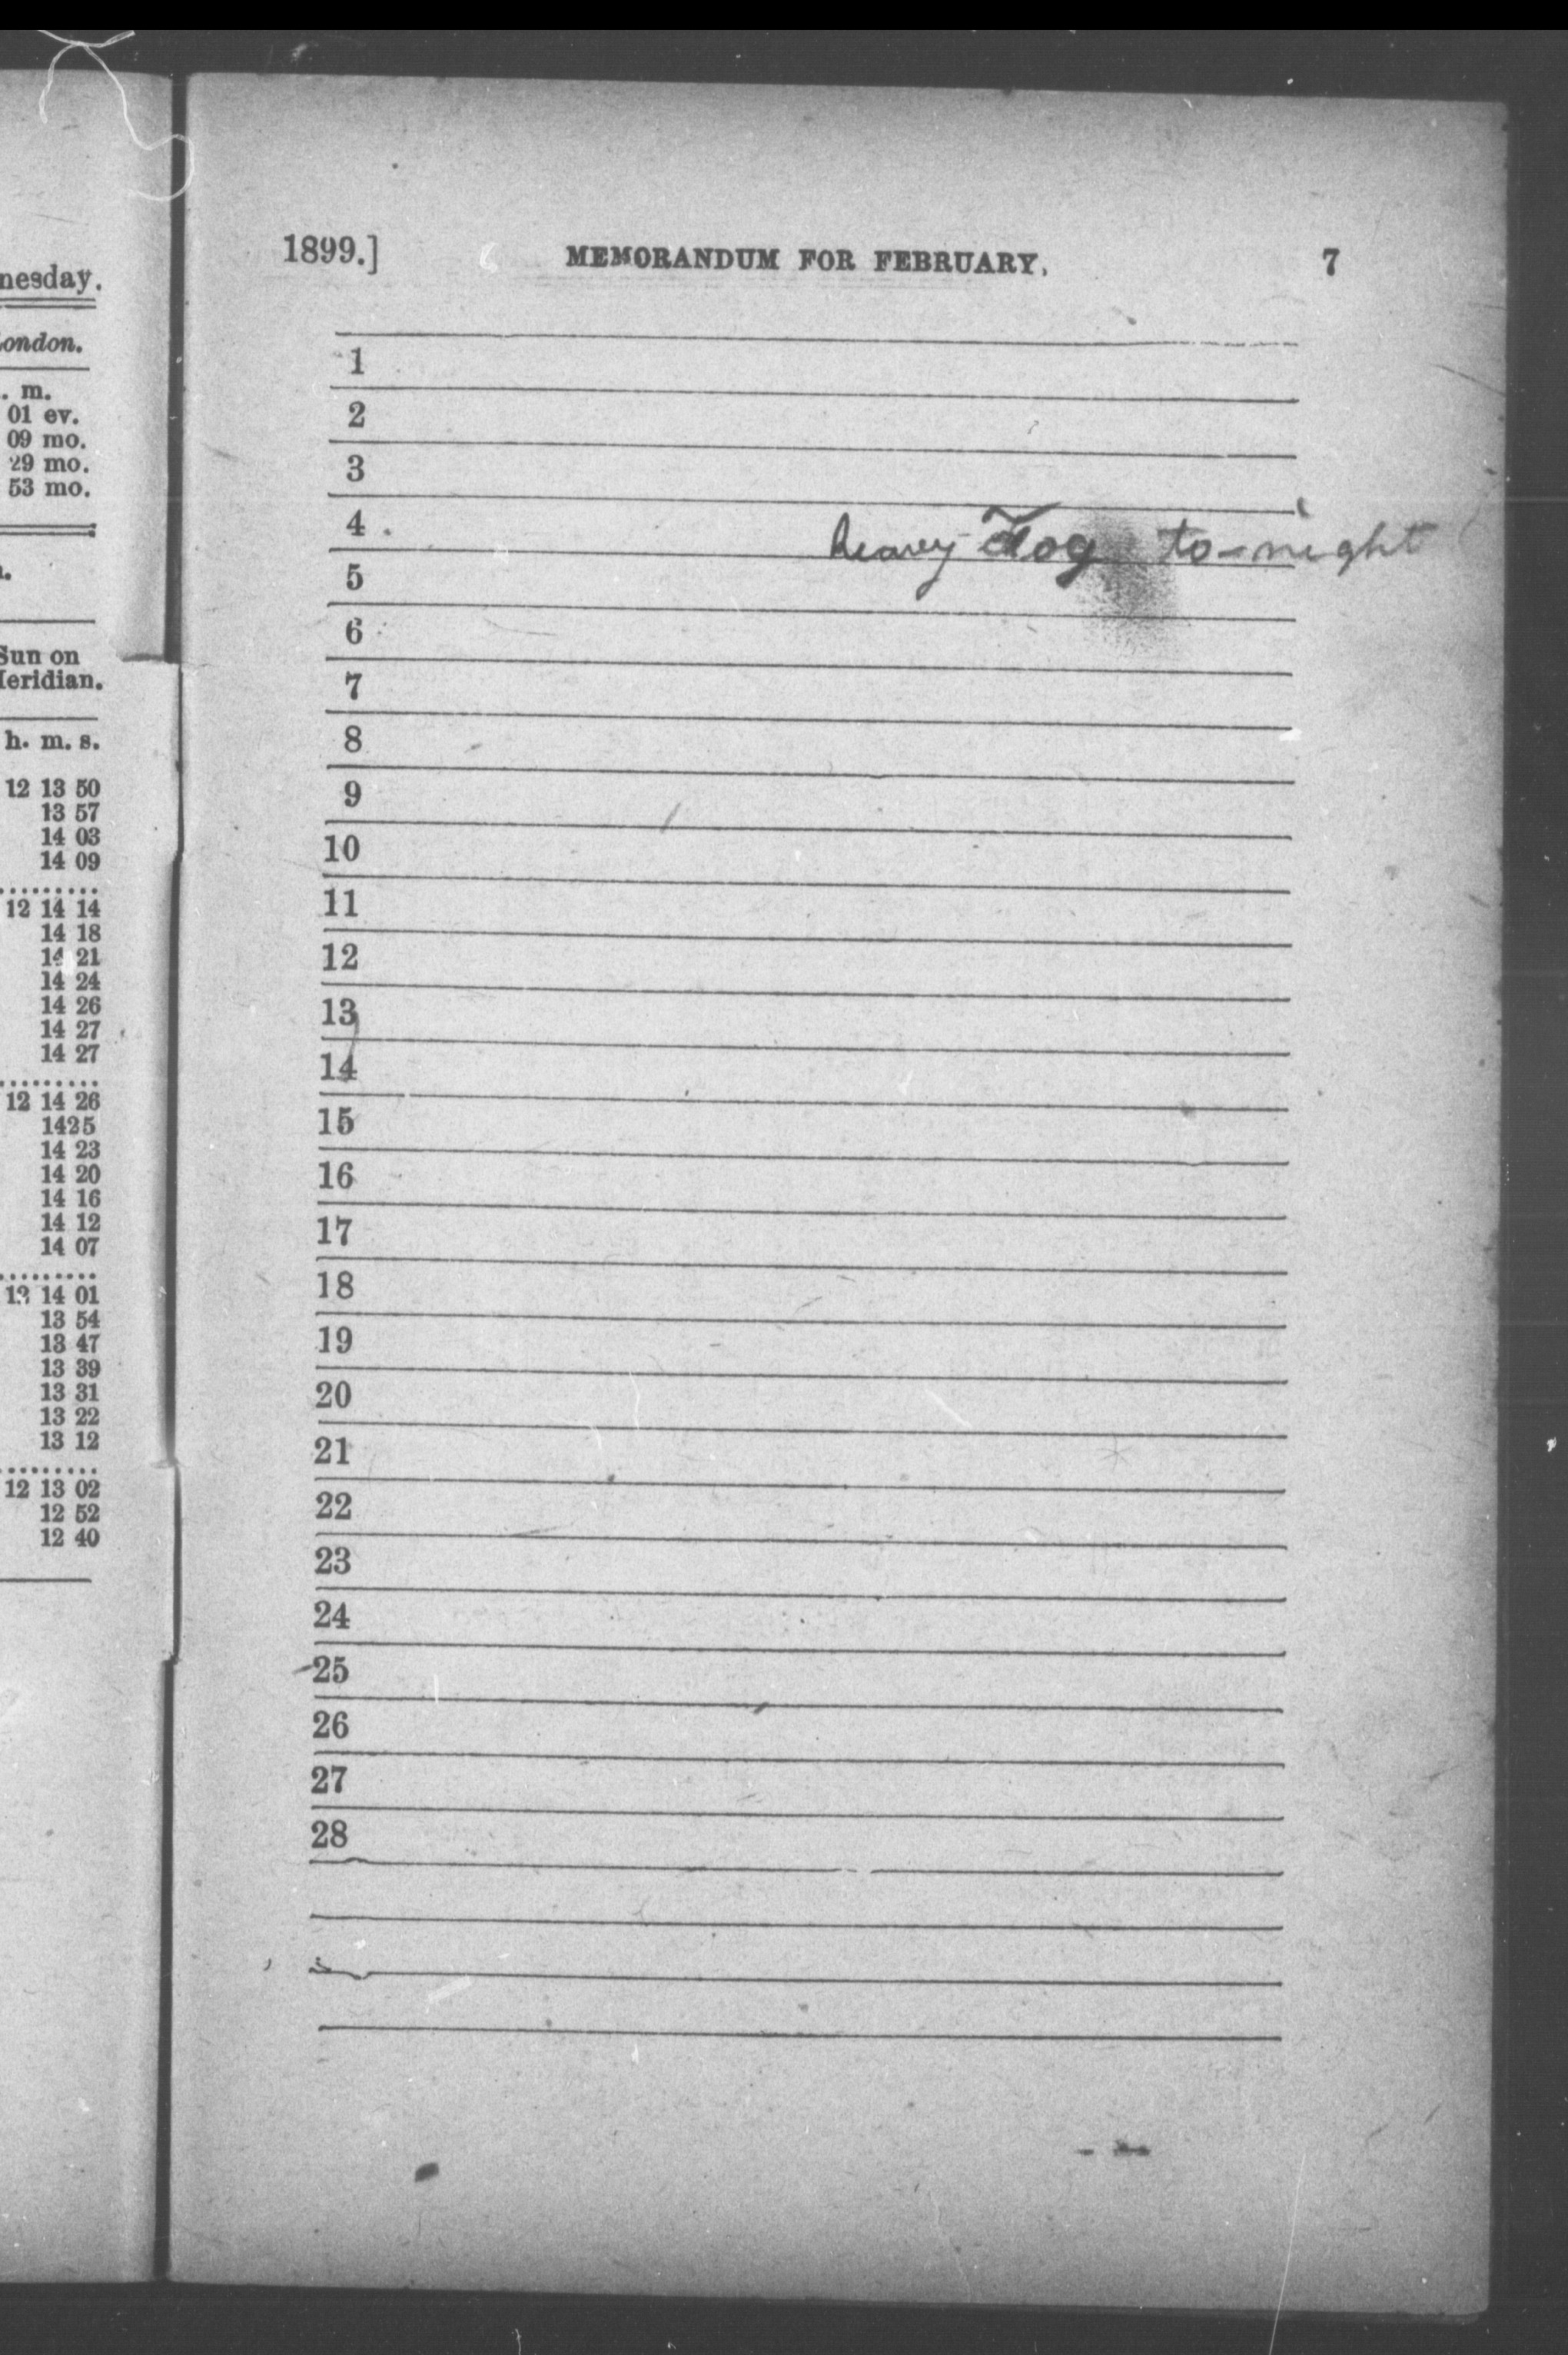 nesday.
ondon.
. m.
01 ev.
09 mo.
29 mo.
53 mo.
Sun on
eridian.
h. m. s.
12 13 50
13 57
14 03
14 09
.........
12 14 14
14 18
14 21
14 24
14 26
14 27
14 27
.........
12 14 26
1425
14 23
14 20
14 16
14 12
14 07
.........
12 14 01
13 54
13 47
13 39
13 31
13 22
13 12
.........
12 13 02
12 52
12 40
1899.] MEMORANDUM FOR FEBRUARY. 7
1
2
3
4 heavy Fog to-night
5
6
7
8
9
10
11
12
13
14
15
16
17
18
19
20
21
22
23
24
25
26
27
28